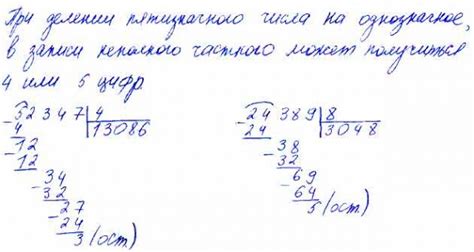 При делении пятизначного числа на однозначное,
в записи неполного частного может получиться
4 или 5 цифр.
-52347|4
4 13086
-12
12
-34
32
-27
24
3 (ост)
-24389|8
24 3048
-38
32
-69
64
5 (ост)